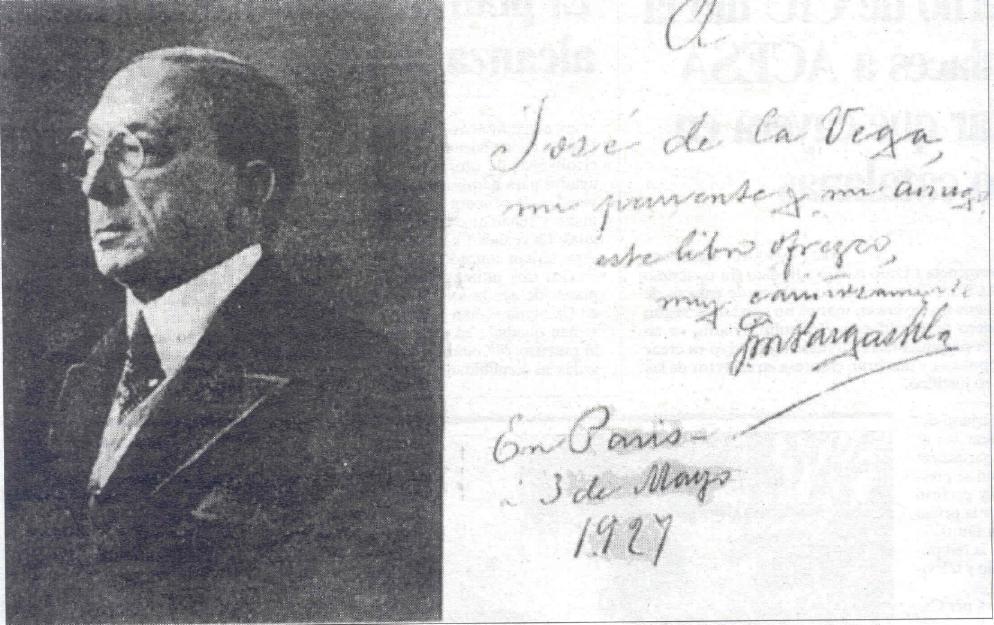 A
José de la Vega,
mi pariente y mi amigo
este libro ofrezco,
muy cariñosamente
JM Vargas Vila
En Paris-
à 3 de Mayo
1927